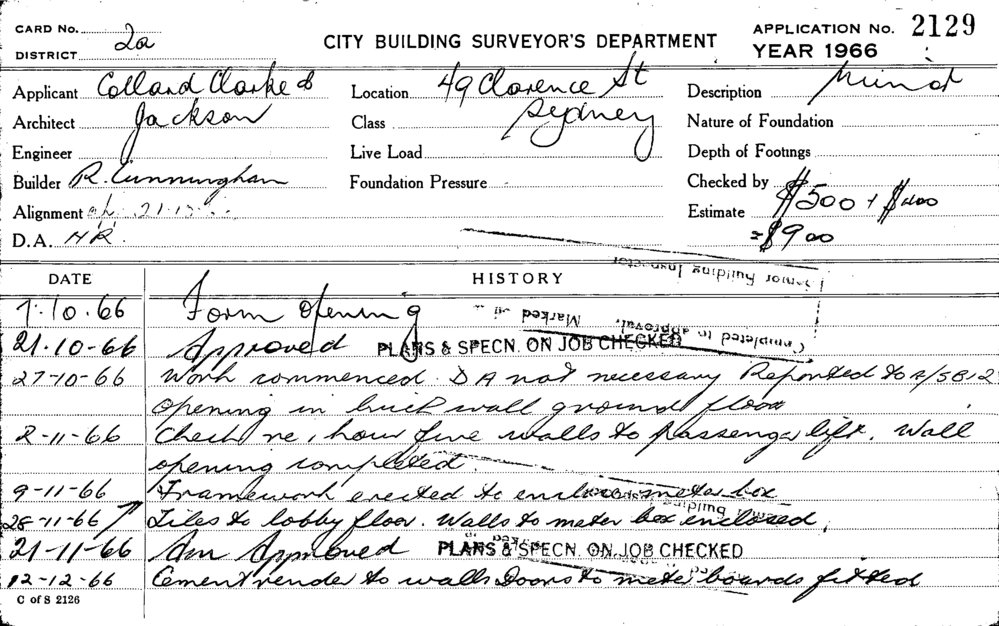 CARD No. CITY BUILDING SURVEYOR'S DEPARTMENT APPLICATION No. 2129
DISTRICT 2a YEAR 1966
Applicant Collard Clarke & Location 49 Clarence St Description Minor
Architect Jackson Class Sydney Nature of Foundation
Engineer Live Load Depth of Footings
Builder R. Cunningham Foundation Pressure Checked by
Alignment 21.10. Estimate $500 + $400
D.A. NR. = $900
Junior Building Inspector
DATE HISTORY
Completed to approval. Marked
7.10.66 Form opening
21.10-66 Approved PLANS & SPECN. ON JOB CHECKED
27-10-66 Work commenced. DA not necessary Reported to
opening in brick wall ground floor
2-11-66 Check re 1 hour fire walls to passenger lift. Wall
opening completed.
9-11-66 Framework erected to enclose meter box
28-11-66 Tiles to lobby floor. Walls to meter box enclosed.
21-11-66 Am Approved PLANS & SPECN. ON JOB CHECKED
12-12-66 Cement render to walls Doors to meter boards fitted
C of S 2126